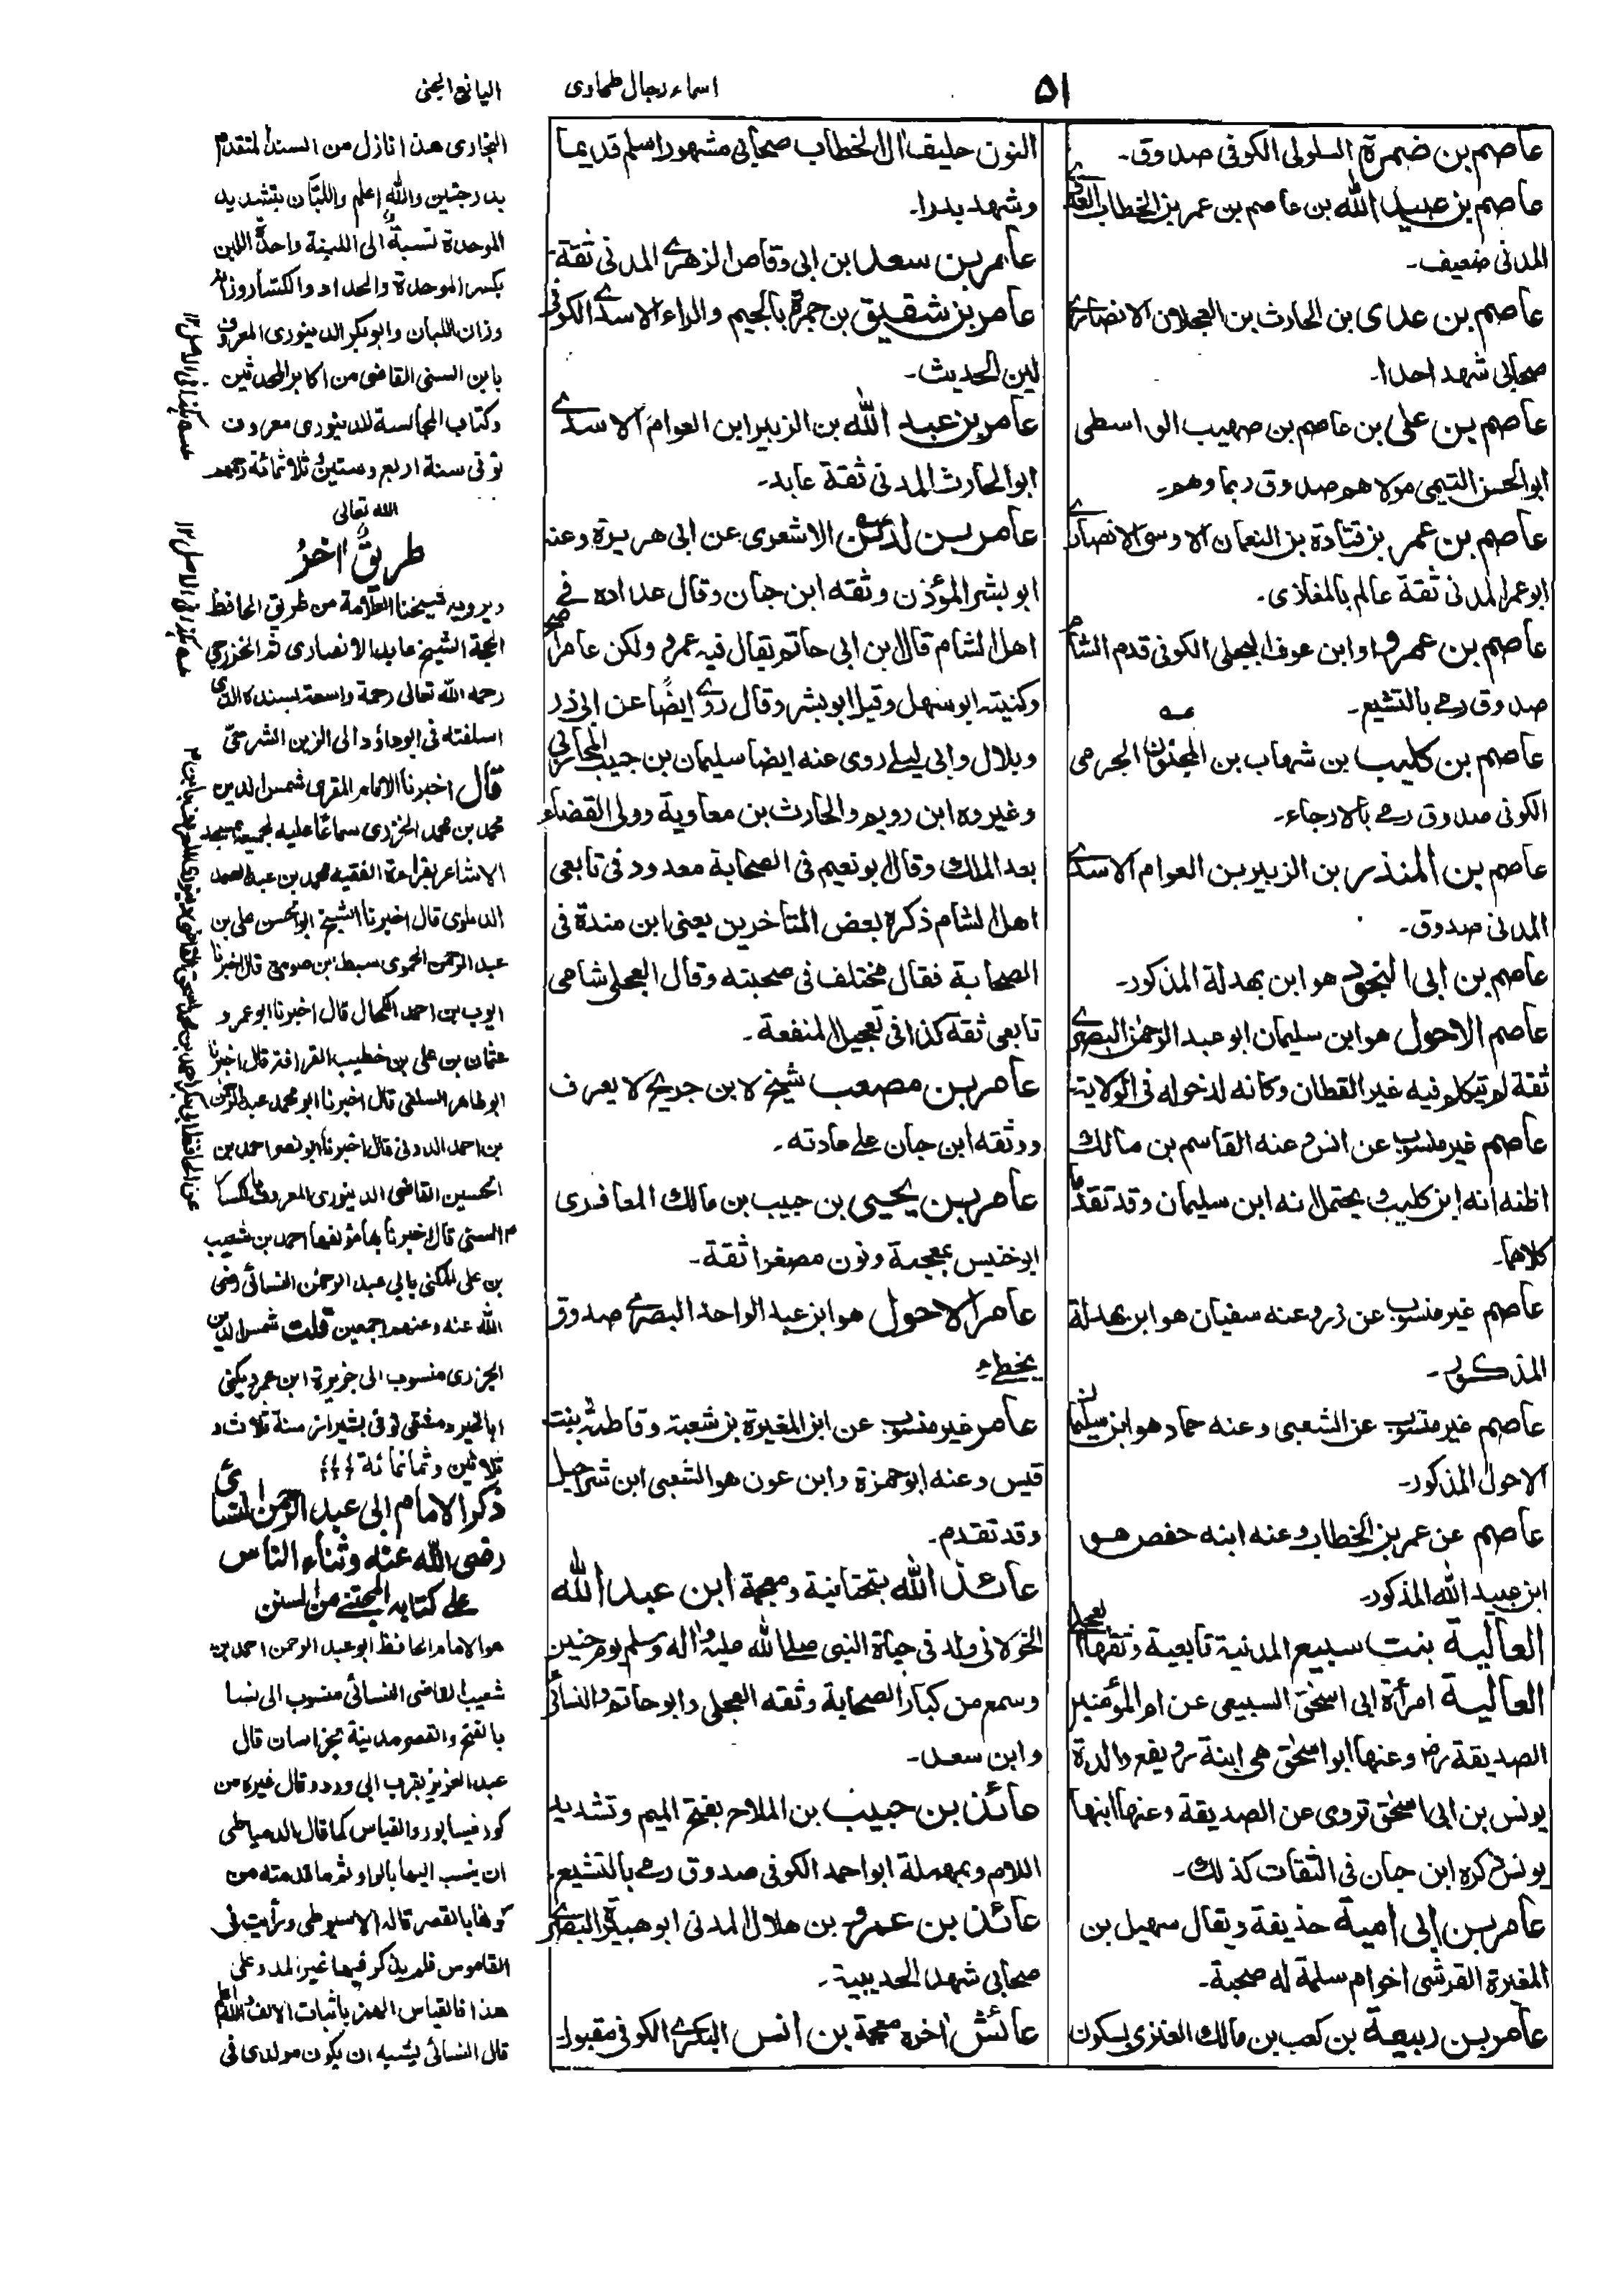 ۵۱
اسماء رجال طحاوی
الیانع الجنی
عاصم بن ضمرة السلولی الکوفی صدوق۔
عاصم بن عبید الله بن عاصم بن عمر بن الخطاب العدوی
المدنی ضعیف۔
عاصم بن عدی بن الحارث بن العجلان الانصاری
صحابی شهد احدا۔
عاصم بن علی بن عاصم بن صهیب الواسطی
ابوالحسن التیمی مولاهم صدوق ربما وهم۔
عاصم بن عمر بن قتادة بن النعمان الاوسی الانصاری
ابوعمر المدنی ثقة عالم بالمغازی۔
عاصم بن عمرو او ابن عوف البجلی الکوفی قدم الشام
صدوق رمی بالتشیع۔
عاصم بن کلیب بن شهاب بن المجنون الجرمی
الکوفی صدوق رمی بالارجاء۔
عاصم بن المنذر بن الزبیر بن العوام الاسدی
المدنی صدوق۔
عاصم بن ابی النجود هو ابن بهدلة المذکور۔
عاصم الاحول هو ابن سلیمان ابو عبد الرحمن البصری
ثقة لم یتکلم فیه غیر القطان وکانه لدخوله فی الولایة
عاصم غیر منسوب عن انس وعنه القاسم بن مالک
اظنه انه ابن کلیب ویحتمل انه ابن سلیمان وقد تقدما
کلاهما۔
عاصم غیر منسوب عن زر وعنه سفیان هو ابن بهدلة
المذکور۔
عاصم غیر منسوب عن الشعبی وعنه حماد هو ابن سلیمان
الاحول المذکور۔
عاصم عن عمر بن الخطاب وعنه ابنه حفص هو
ابن عبید الله المذکور۔
العالیة بنت سبیع المدنیة تابعیة وثقها العجلی
العالیة امرأة ابی اسحٰق السبیعی عن ام المؤمنین
الصدیقة رض وعنها ابو اسحٰق هی ابنة یفع والدة
یونس بن ابی اسحٰق تروی عن الصدیقة وعنها ابنها
یونس ذکره ابن حبان فی الثقات کذلك۔
عامر بن ابی امیة حذیفة ویقال سهیل بن
المغیرة القرشی اخو ام سلمة له صحبة۔
عامر بن ربیعة بن کعب بن مالك العنزی بسکون
النون حلیف اٰل الخطاب صحابی مشهور اسلم قدیما
وشهد بدرا۔
عامر بن سعد بن ابی وقاص الزهری المدنی ثقة۔
عامر بن شقیق بن جمرة بالجیم والراء الاسدی الکوفی
لین الحدیث۔
عامر بن عبد الله بن الزبیر ابن العوام الاسدی
ابو الحارث المدنی ثقة عابد۔
عامر بن لدین الاشعری عن ابی هریرة وعنه
ابو بشر المؤذن وثقه ابن حبان وقال عداده فی
اهل الشام قال ابن ابی حاتم یقال فیه عمرو ولکن عامر اصح
وکنیته ابو سهل وقیل ابو بشر وقال روی ایضًا عن ابی ذر
وبلال وابی لیلی روی عنه ایضا سلیمان بن حبیب المحاربی
وغیره ابن رویم والحارث بن معاویة وولی القضاء
بعد الملك وقال ابو نعیم فی الصحابة معدود فی تابعی
اهل الشام ذکره بعض المتاخرین یعنی ابن مندة فی
الصحابة فقال مختلف فی صحبته وقال العجلی شامی
تابعی ثقة کذا فی تعجیل المنفعة۔
عامر بن مصعب شیخ لابن جریج لا یعرف
ووثقه ابن حبان علی عادته۔
عامر بن یحیی بن حبیب بن مالك المعافری
ابو خنیس بمعجمة ونون مصغرا ثقة۔
عامر الاحول هو ابن عبد الواحد البصری صدوق
یخطئ
عامر غیر منسوب عن ابن المغیرة بن شعبة وفاطمة بنت
قیس وعنه ابو حمزة وابن عون هو الشعبی ابن شراحیل
وقد تقدم۔
عائذ الله بتحتانیة ومعجمة ابن عبد الله
الخولانی ولد فی حیاة النبی صلی الله علیه واٰله وسلم یوم حنین
وسمع من کبار الصحابة وثقه العجلی وابو حاتم والنسائی
وابن سعد۔
عائذ بن حبیب بن الملاح بفتح المیم وتشدید
اللام وبمهملة ابو احمد الکوفی صدوق رمی بالتشیع۔
عائذ بن عمرو بن هلال المدنی ابو هبیرة البصری
صحابی شهد الحدیبیة۔
عائش اٰخره معجمة بن انس البکری الکوفی مقبول۔
البخاری هذا نازل من السند المتقدم
بدرجتین والله اعلم واللبّان بتشدید
الموحدة نسبة الی اللبنة واحدة اللبن
بکسر الموحدة والحداد والکسار وزان
وزان اللبان وابو بکر الدینوری المعروف
بابن السنی القاضی من اکابر المحدثین
وکتاب المجالسة للدینوری معروف
توفی سنة اربع وستین وثلاثمائة رحمهم
الله تعالی
طریق اٰخر
ویرویه شیخنا العلامة من طریق الحافظ
الحجة الشیخ عابد الانصاری ثم الخزرجی
رحمه الله تعالی رحمة واسعة بسنده الذی
اسلفته فی ابوداؤد الی الزین الشرجیّ
قال اخبرنا الامام المقری شمس الدین
محمد بن محمد الجزری سماعًا علیه لجمیعه بمسجد
الاشاعر بقراءة الفقیه محمد بن عبد الصمد
قال اخبرنا الشیخ ابو الحسن علی بن
عبد الرحمن الحموی سبط بن صومع قال اخبرنا
ایوب بن احمد الکحال قال اخبرنا ابو عمرو
عثمان بن علی بن خطیب القرافة قال اخبرنا
ابو طاهر السلفی قال اخبرنا ابو محمد عبد الرحمن
بن احمد الدونی قال اخبرنا ابو نصر احمد بن
الحسین القاضی الدینوری المعروف بالکسار
السنی قال اخبرنا بها مؤلفها احمد بن شعیب
بن علی المکنی بابی عبد الرحمن النسائی رضی
الله عنه وعنهم اجمعین قلت شمس الدین
الجزری منسوب الی جزیرة ابن عمر ویکنی
ابا الخیر دمشقی توفی بشیراز سنة ثلاث و
ثلاثین وثمانمائة
ذکر الامام ابی عبد الرحمن النسائی
رضی الله عنه وثناء الناس
علی کتابه المجتبی من السنن
هو الامام الحافظ ابو عبد الرحمن احمد بن
شعیب القاضی النسائی منسوب الی نسا
بالفتح والقصر مدینة بخراسان قال
عبد العزیز بقرب ابی ورد وقال غیره من
کور نیسابور والقیاس کما قال الدمیاطی
ان ینسب الیها بالواو ثم ما قدمته من
کونها بالقصر قاله الاسیوطی ورأیت فی
القاموس فلم یذکر فیها غیر المد وعلی
هذا فالقیاس الهمز باثبات الالف والله اعلم
قال النسائی یشبه ان یکون مولدی فی